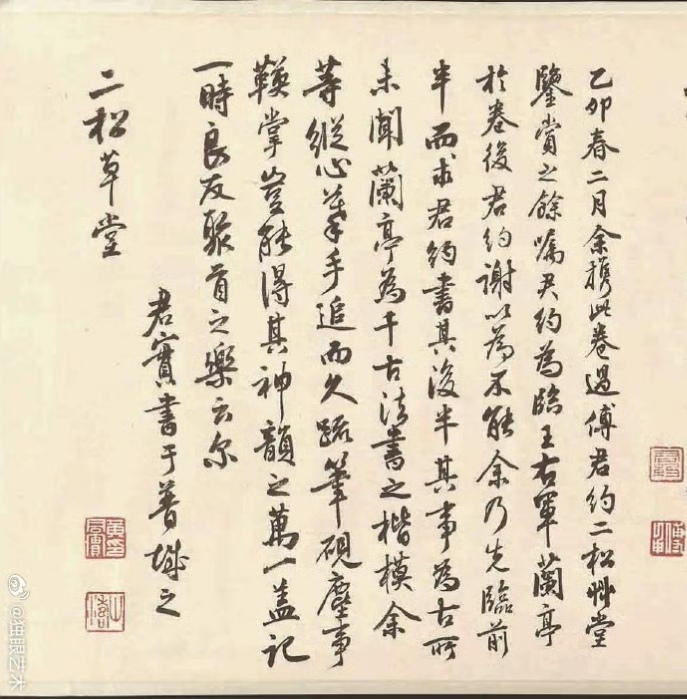 乙卯春二月余携此卷過傅君約二松艸堂
鑒賞之餘囑君約為臨王右軍蘭亭
於卷後君約謝以為不能余乃先臨前
半而求君約書其後半其事為古所
未聞蘭亭為千古法書之楷模余
等縱心摹手追而久疏筆硯塵事
鞅掌豈能得其神韻之萬一蓋記
一時良友聚首之樂云尔
君實書于蓉城之
二松草堂
@独眼艺术